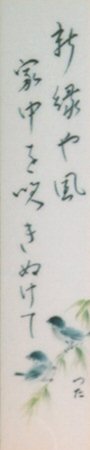 新緑や風
家中を吹きぬけて
つた